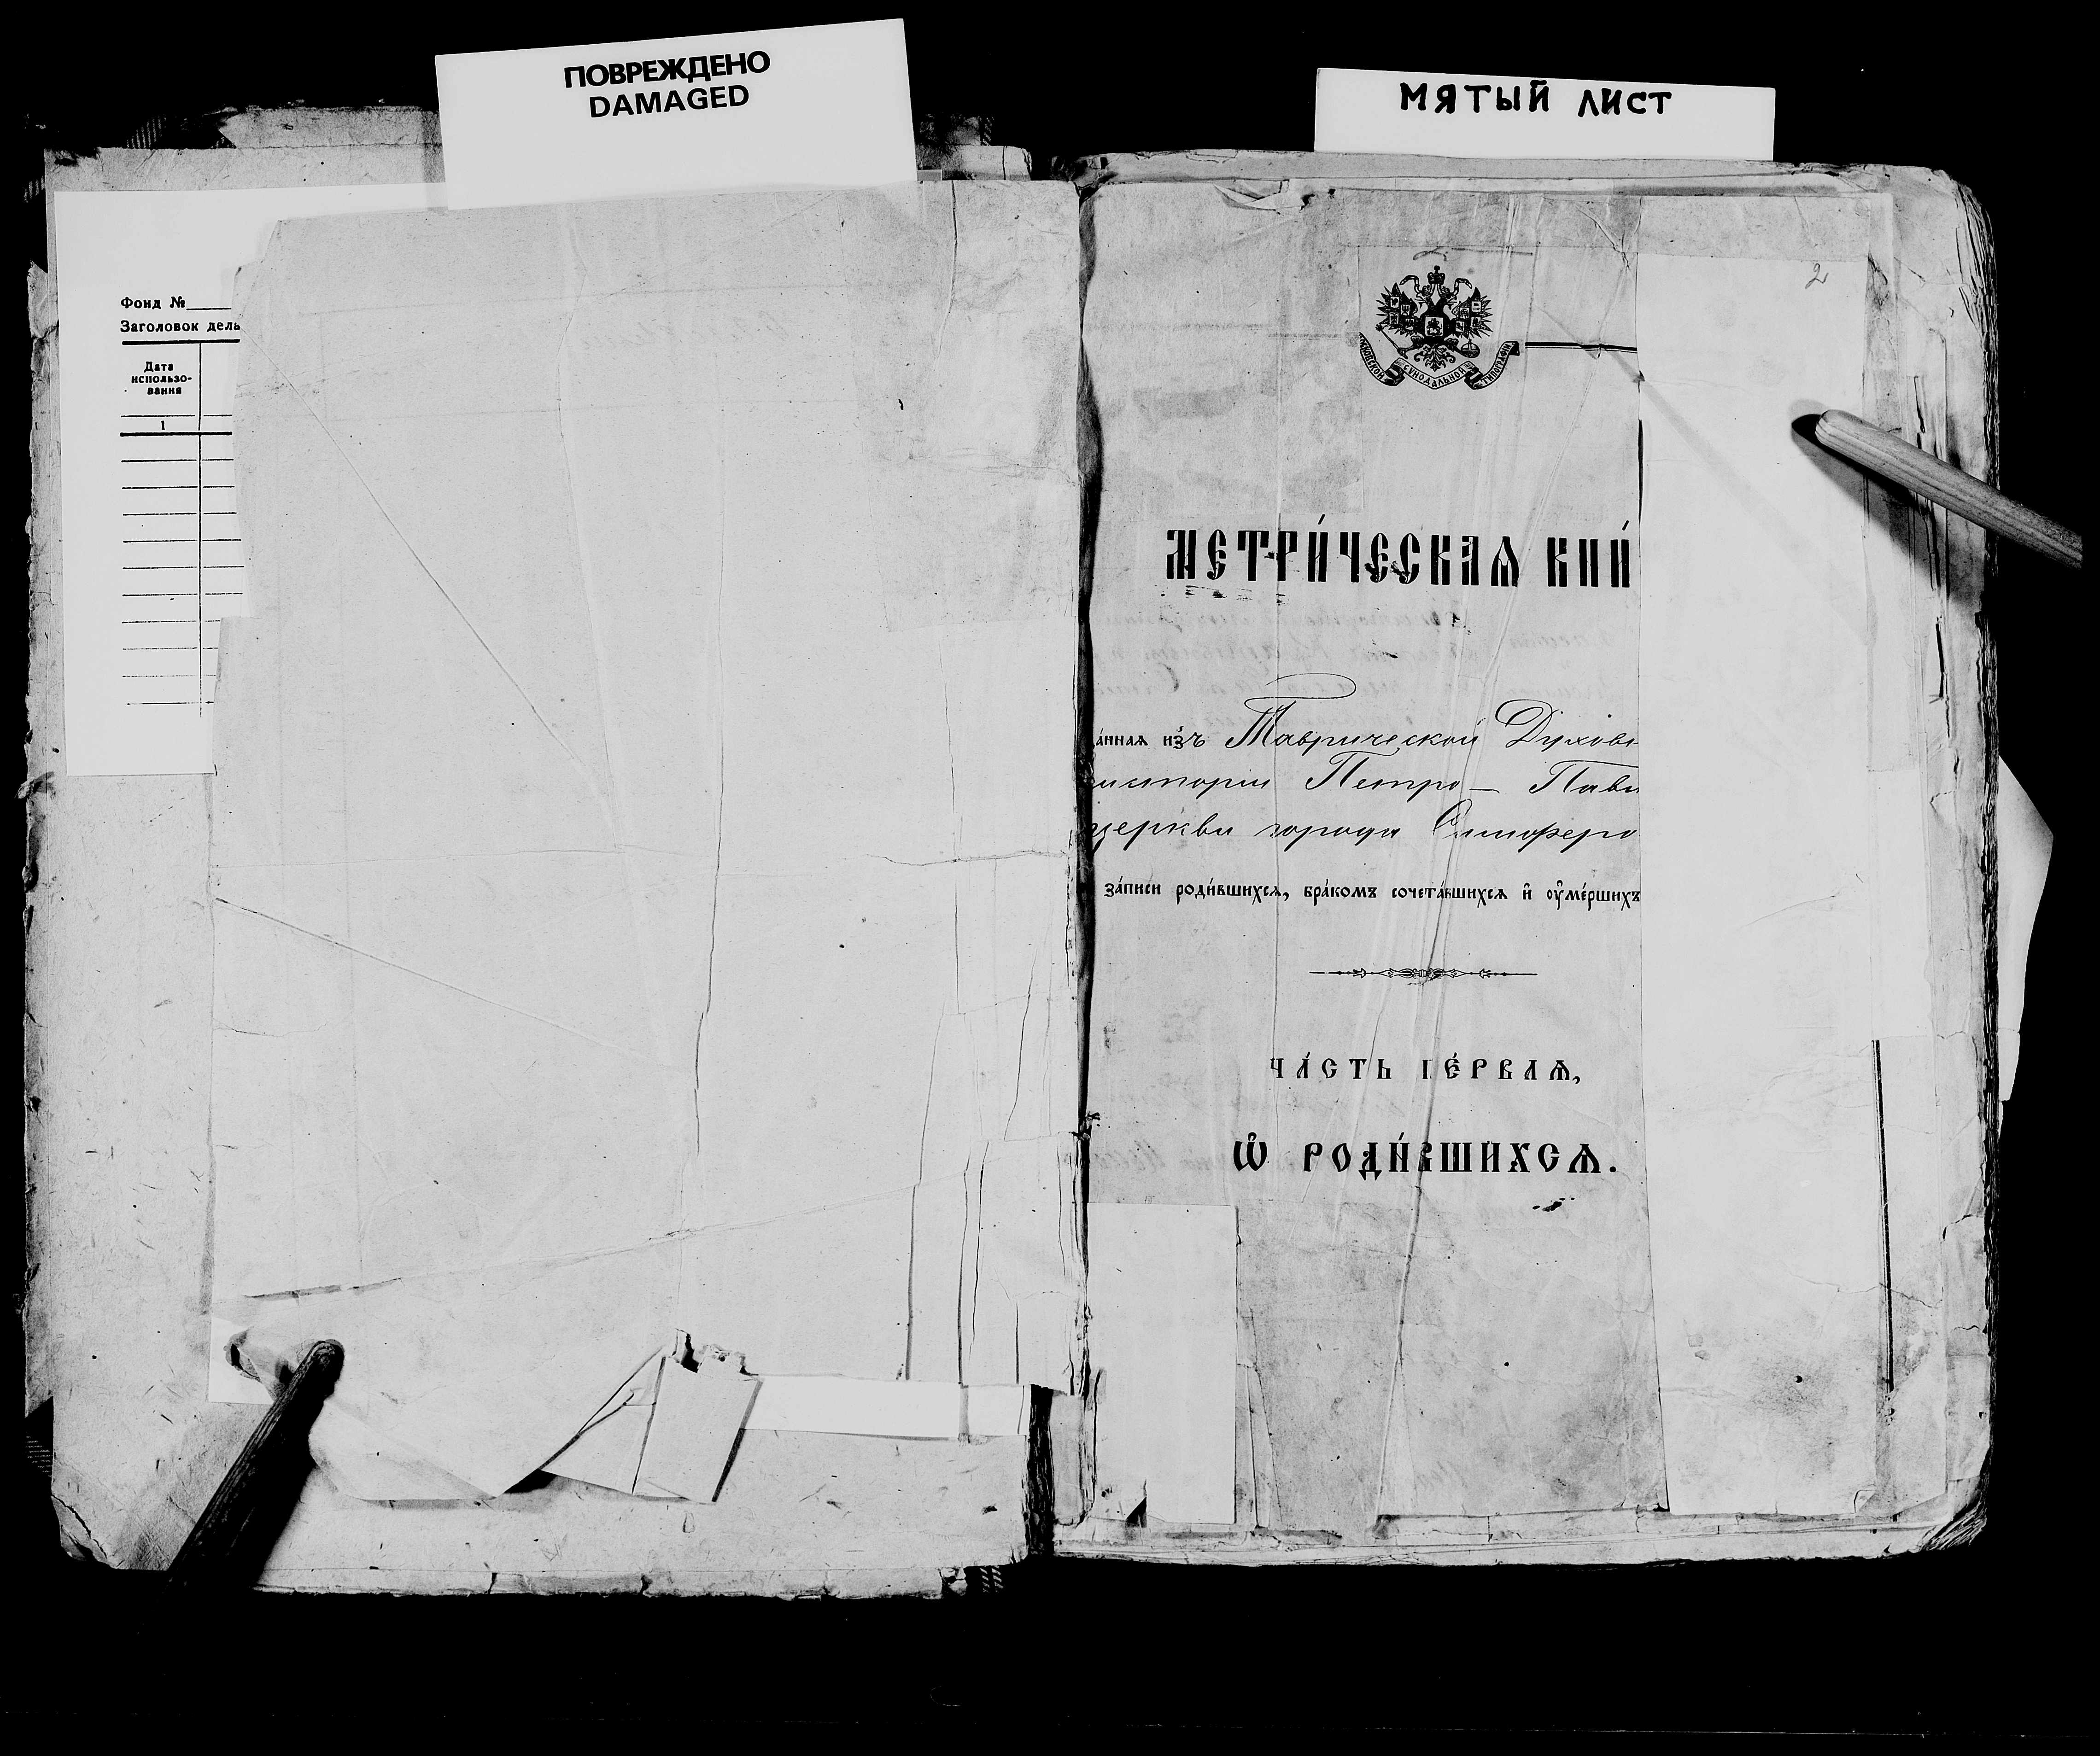 ПОВРЕЖДЕНО
DAMAGED
МЯТЫЙ ЛИСТ
Фонд №
Заголовок дель
Дата
использо-
вания
1
2
СУНОДАЛЬНОЙ ТИПОГРАФІИ
МЕТРИ́ЧЕСКАѦ КНИ́
а́нная из̾ъ Таврической Духовн
систоріи Петро- Павл
церкви города Симферо
за́писи роди́вшихсѧ, бра́комъ сочета́вшихсѧ и҆ ᲂу҆ме́ршихъ
ЧА́СТЬ ПЕ́РВАѦ,
Ѡ҆ РОДИ́ВШИХСѦ.